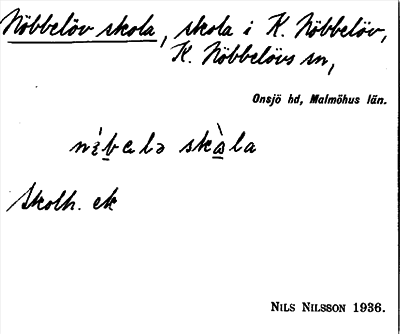 Nöbbelöv skola, skola i K. Nöbbelöv,
K. Nöbbelövs sn,
Onsjö hd, Malmöhus län.
skàla
Skolh. ek
NILS NILSSON 1936.